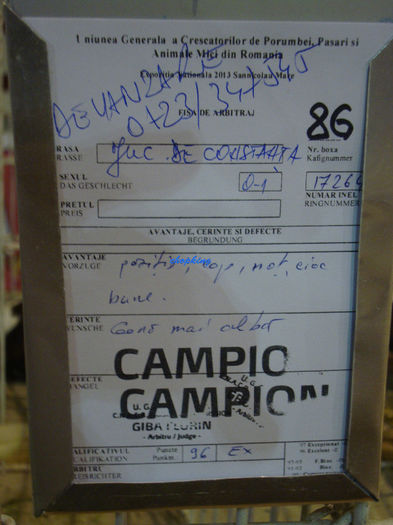 Uniunea Generala a Crescatorilor de Porumbei, Pasari si
Animale Mici din Romania
Expozitia Nationala 2013 Sannicolau Mare
DE VANZARE
FISA DE ARBITRAJ
86
RASA
RASSE
Juc. DE CONSTANTA
Nr. boxa
Kafignummer
SEXUL
DAS GESCHLECHT
0-1
1726
NUMAR INEL
RINGNUMMER
PRETUL
PREIS
AVANTAJE, CERINTE SI DEFECTE
BEGRUNDUNG
AVANTAJE
VORZUGE
poziție, cap, moț, cioc
bune.
CERINTE
WUNSCHE
mai
DEFECTE
MANGEL
CAMPIO
CAMPION
U. G.
U. G.
GIBA FLORIN
- Arbitru / Judge -
CALIFICATIVUL
QUALIFIKATION
Puncte
Punkte
96
EX
97 Exceptional
96 Excelent
ARBITRU
PREISRICHTER